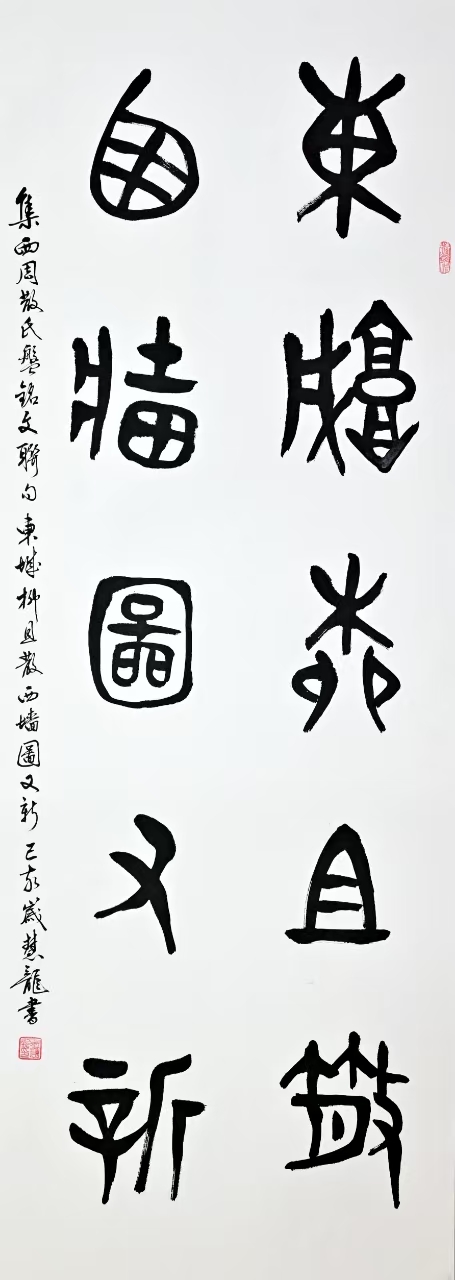 東城柳且散
西墻圖又新
集西周散氏盤銘文聯句東城柳且散西墻圖又新己亥歲慧龍書